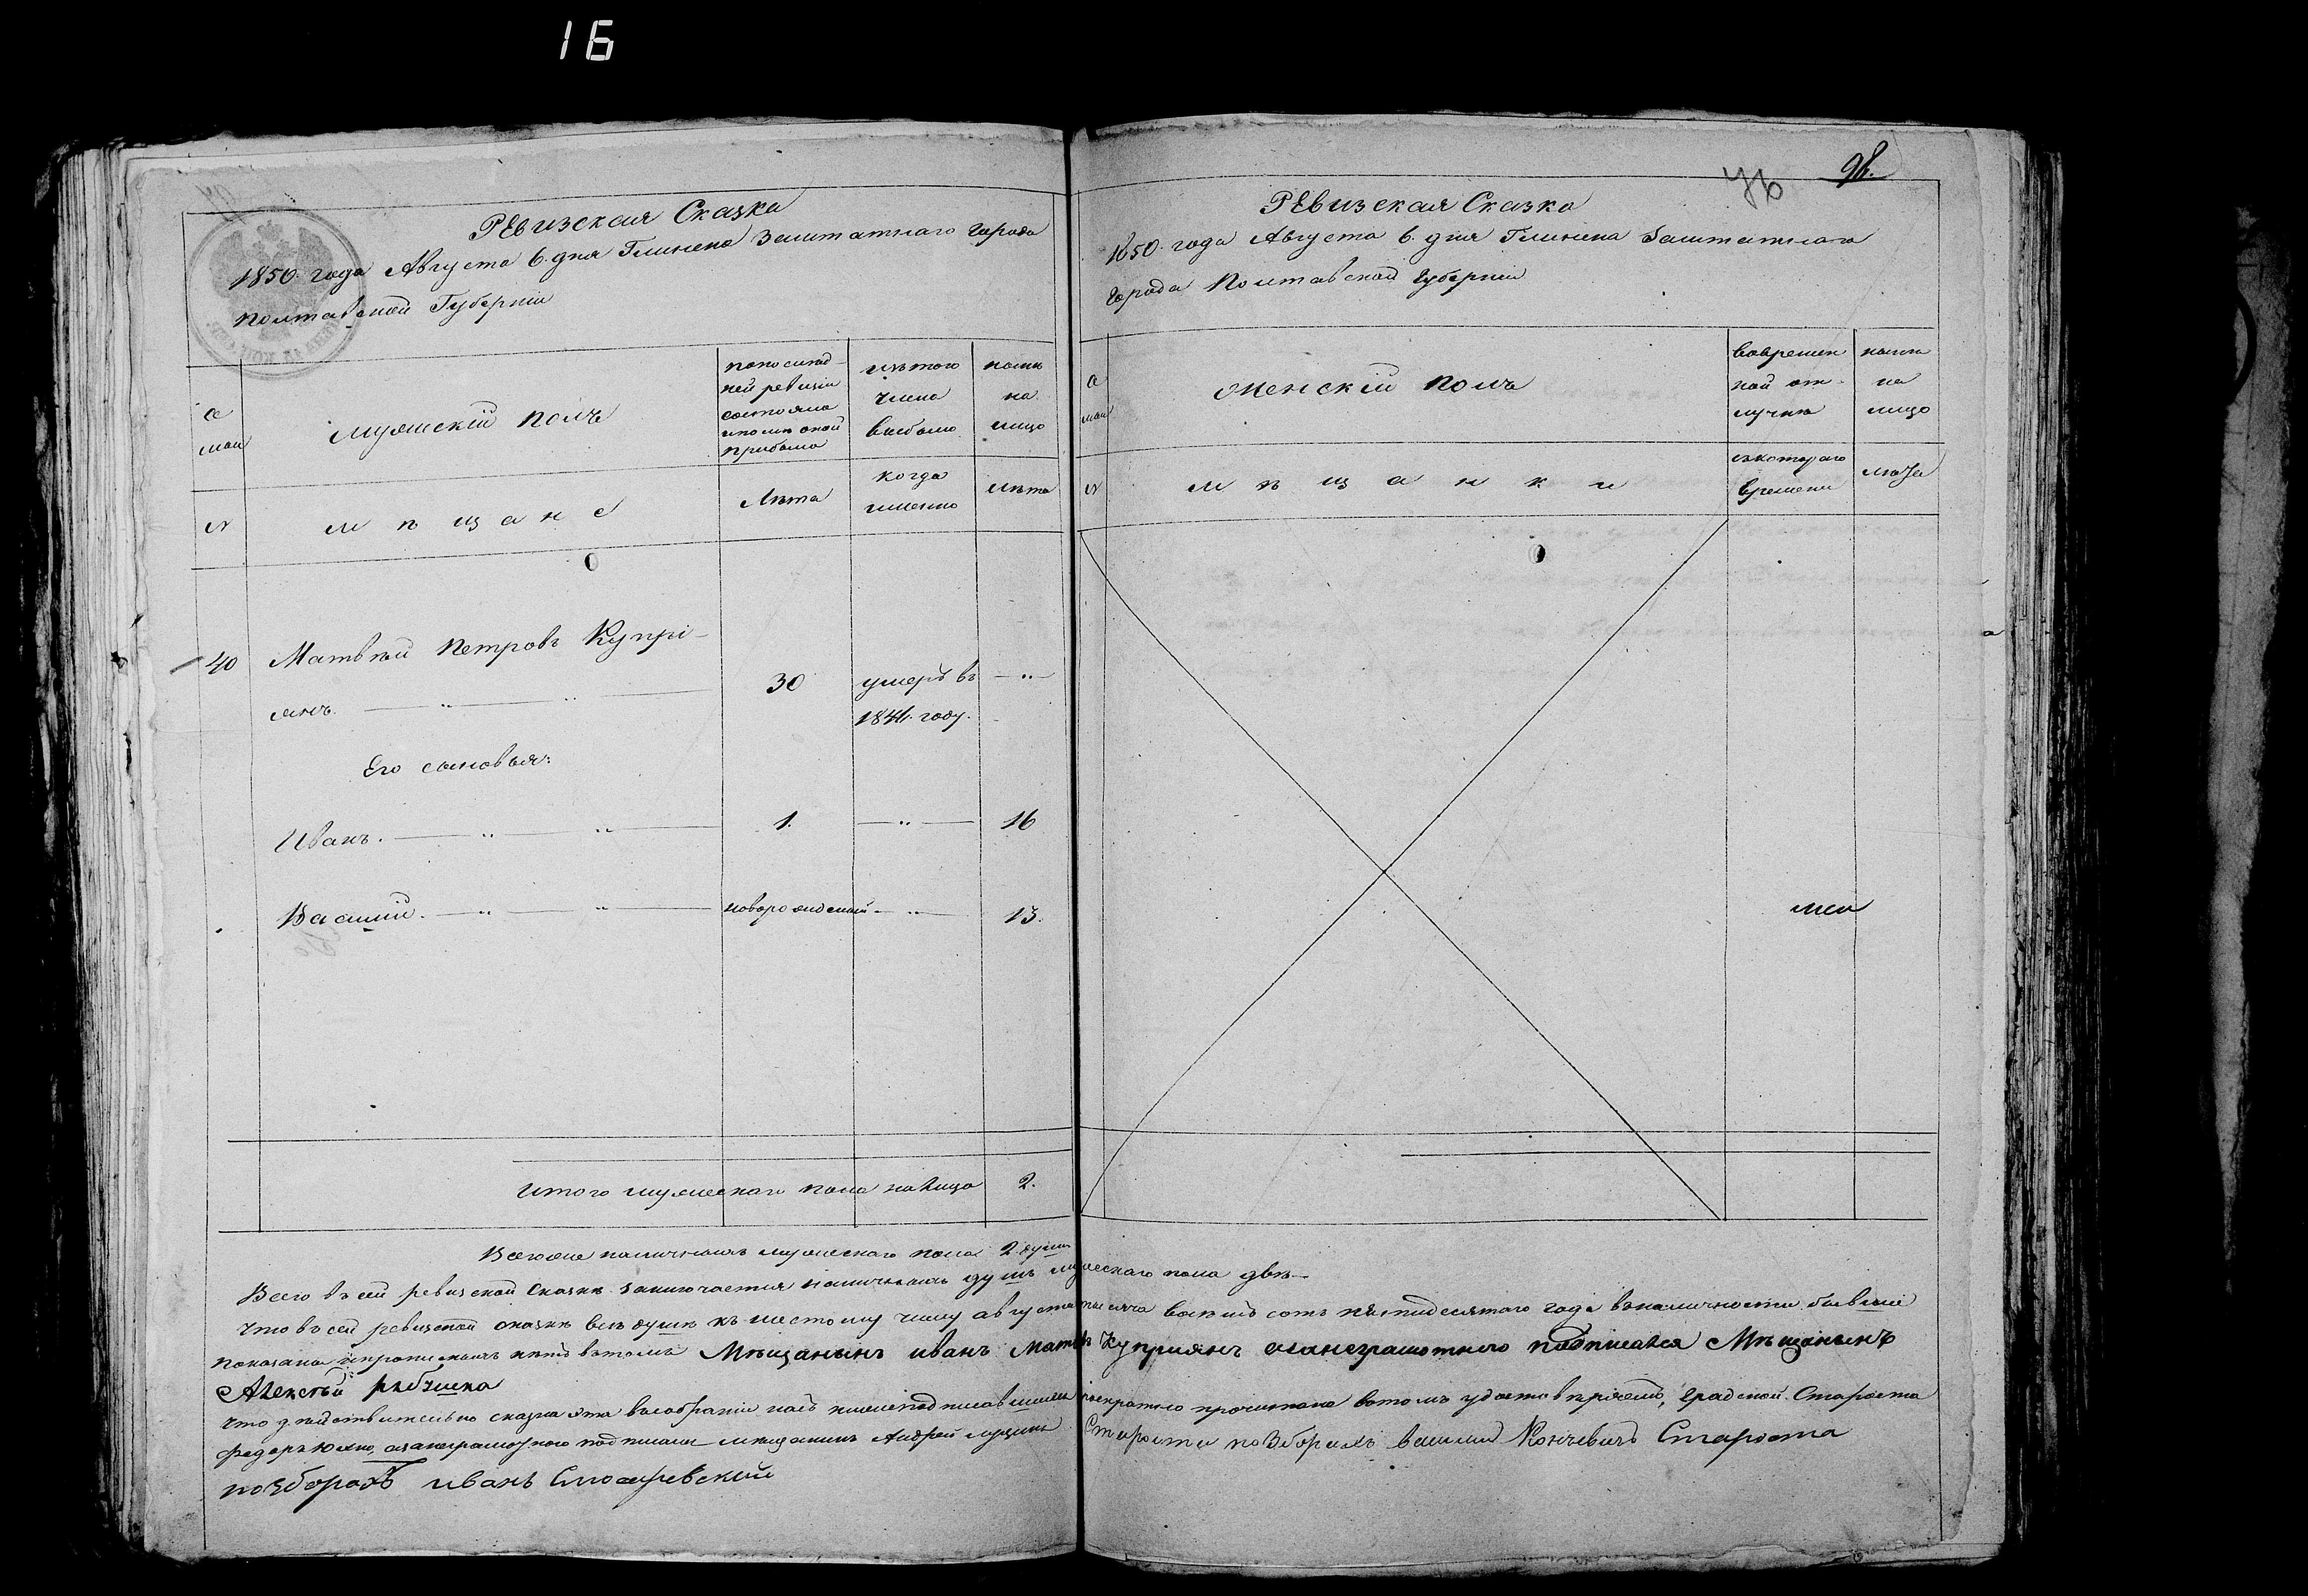 16
Ревизская Сказка
1850. года Августа 6. дня Глинска Заштатнаго города
Полтавской Губерніи
се
мьи
мужескій полъ
попослѣд-
ней ревизіи
состояло
ипослѣ оной
прибыло
изътого
числа
выбыло
нынѣ
на
лицо
№
мѣщане
Лѣта
когда
именно
лѣта
40
Матвѣй Петровъ Купрі-
янъ.
30
умеръ въ
1841. году.
Его сыновья:
Иванъ.
1.
16
Василій.
новорожденный
13.
Итого мужескаго пола налицо
2.
98.
Ревизская Сказка
1850. года Августа 6. дня Глинска Заштатнаго
города Полтавской Губерніи
се
мьи
женскій полъ
вовремен
ной от-
лучкѣ
нынѣ
на
лицо
№
мѣщанки
съкотораго
времени
лѣта
Всегоже наличныхъ мужескаго пола 2 души
Всего въ сей ревизской сказкѣ заключается наличныхъ душъ мужескаго пола двѣ
Что въ сей ревизской сказкѣ всѣ души къ шестому числу августа тысяча восемь сотъ пятидесятаго года вналичности бывшіе
показаны ипрописныхъ нѣтъ вътомъ Мѣщанынъ иванъ Матвѣевъ Купріянъ азанеграмотнего подписался Мѣщанынъ
Алексѣй
что дѣйствительно сказка эта всобраніи прочитана вътомъ удостовѣряемъ, Градской Староста
федоръ азанеграмотнаго подписался мѣщанинъ Андрей Староста поЗборамъ василій Староста
поЗборахъ иванъ